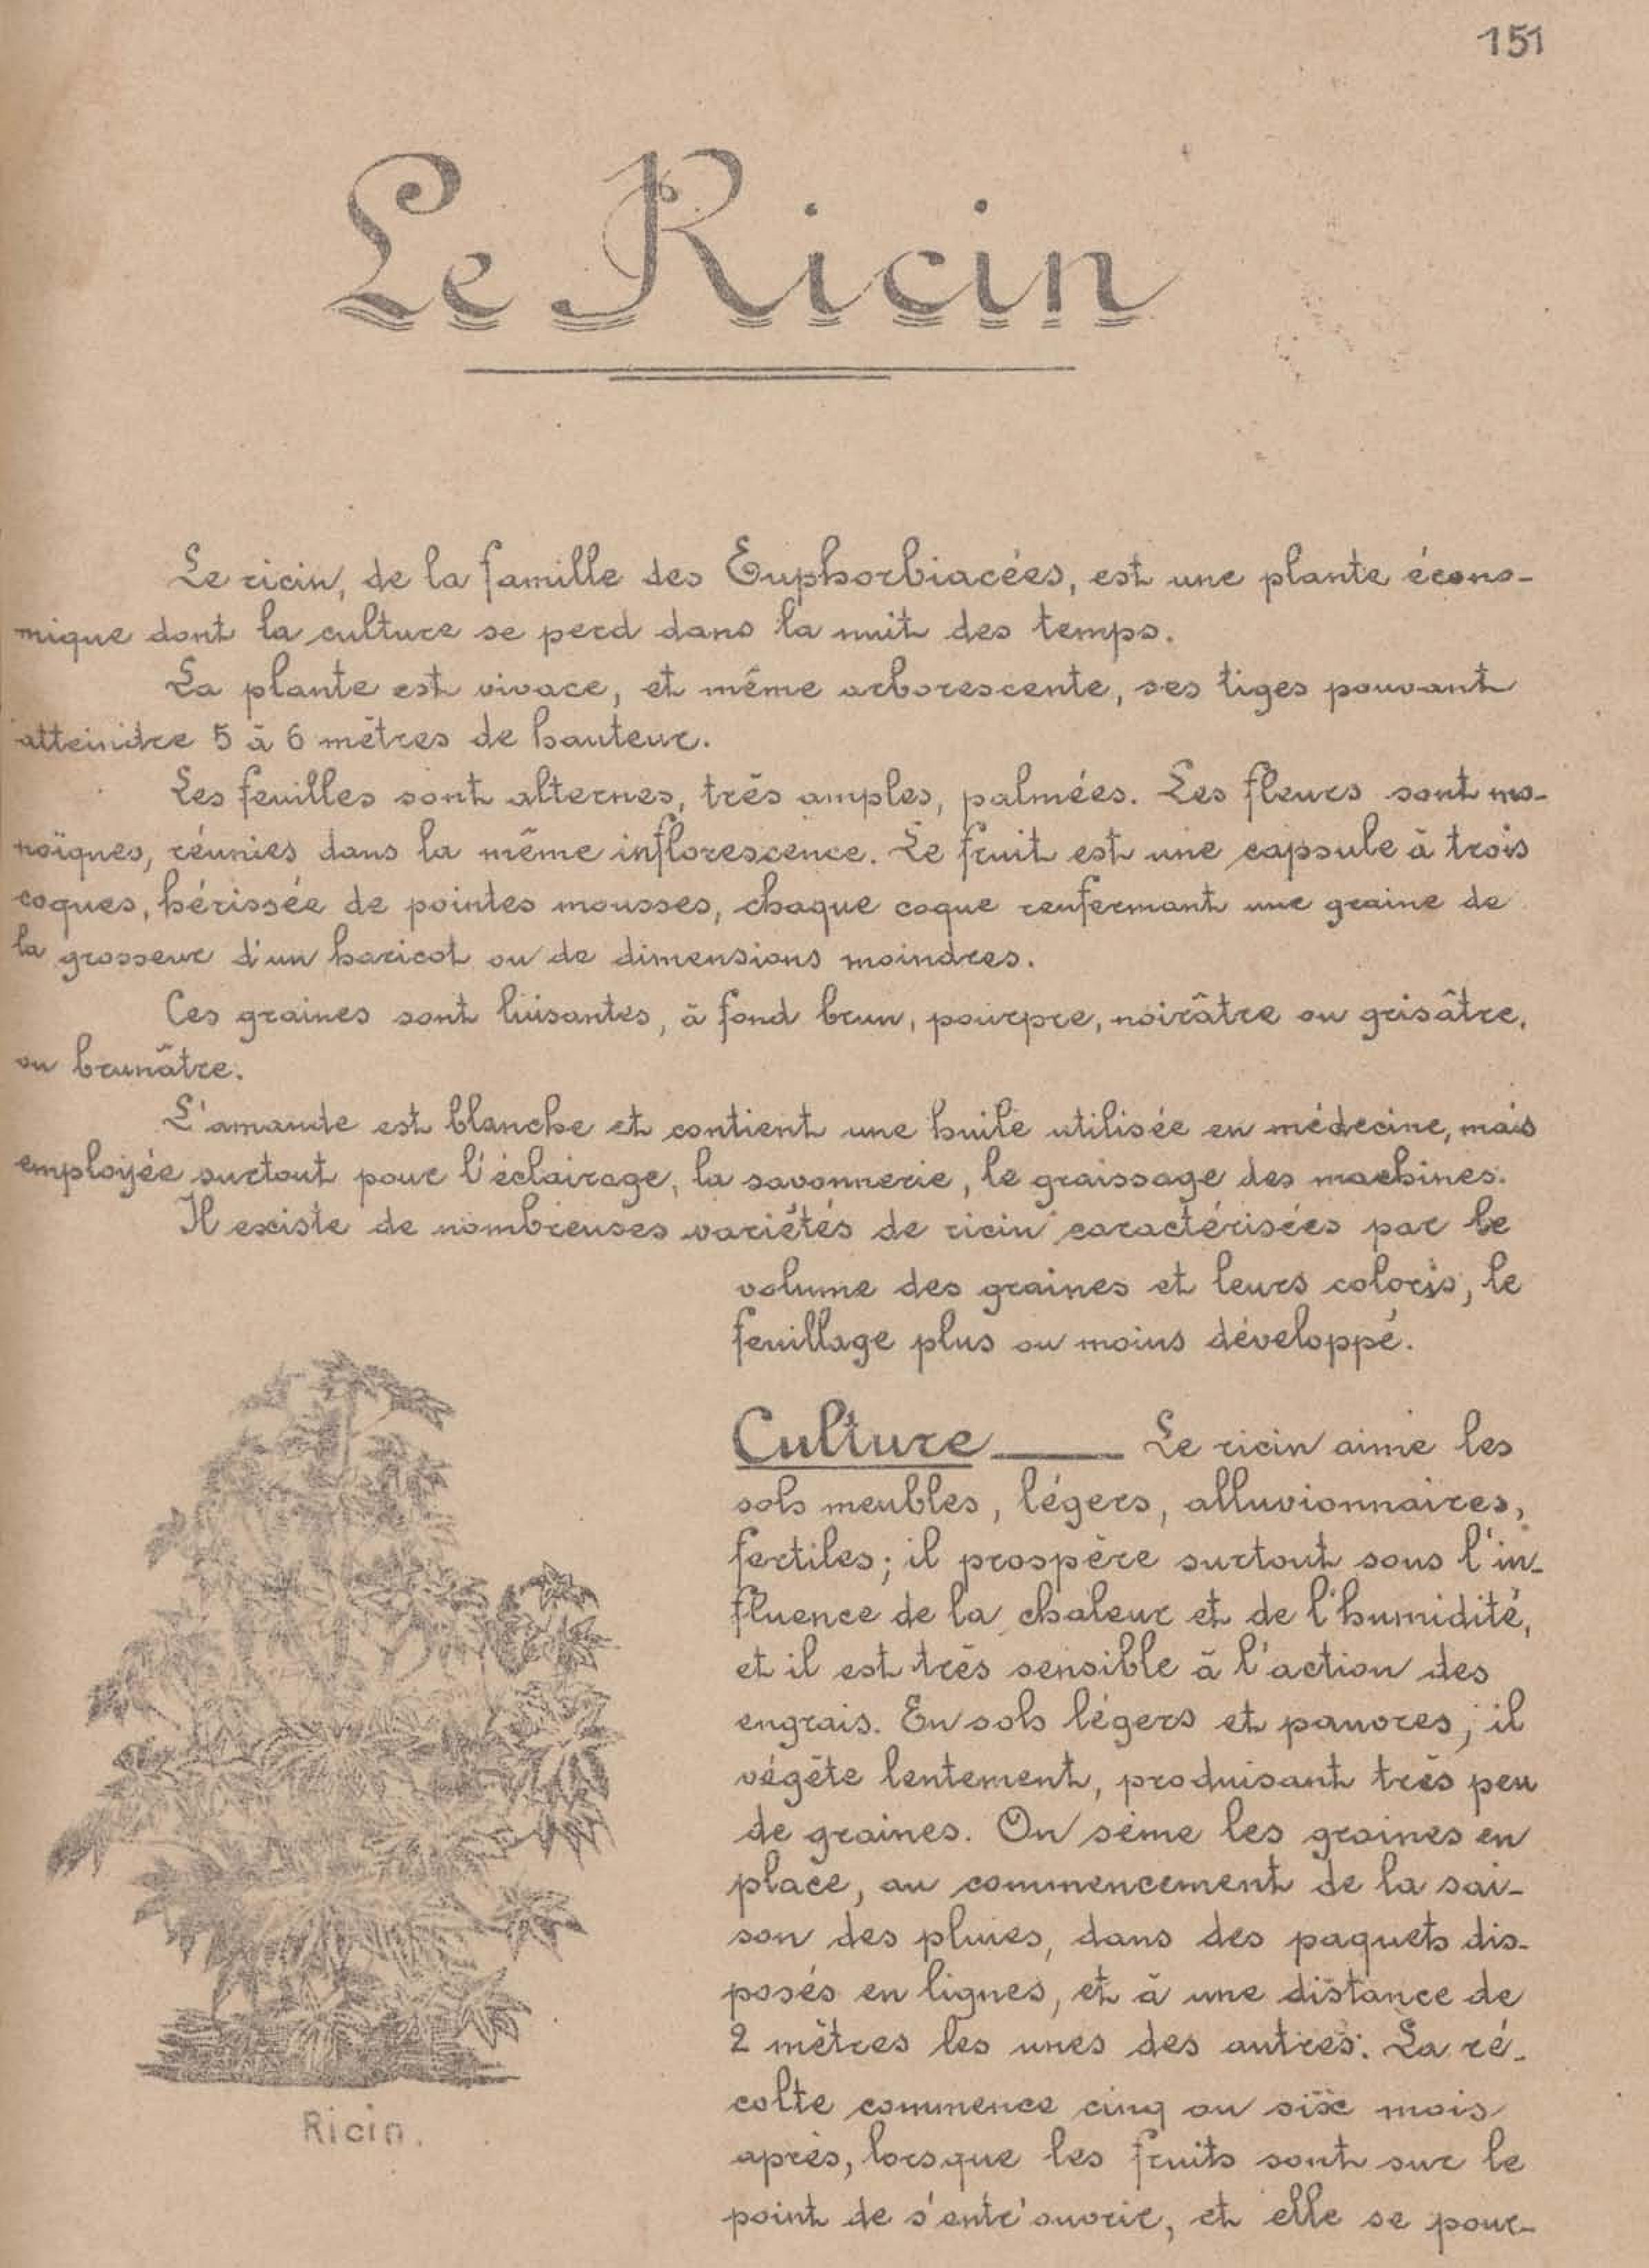 151
Le Ricin
Le ricin, de la famille des Euphorbiacées, est une plante écono-
mique dont la culture se perd dans la nuit des temps.
La plante est vivace, et même arborescente, ses tiges pouvant
atteindre 5 à 6 mètres de hauteur.
Les feuilles sont alternes, très amples, palmées. Les fleurs sont mo-
noïques, réunies dans la même inflorescence. Le fruit est une capsule à trois
coques, hérissée de pointes mousses, chaque coque renfermant une graine de
la grosseur d'un haricot ou de dimensions moindres.
Ces graines sont luisantes, à fond brun, pourpre, noirâtre ou grisâtre,
ou brunâtre.
L'amande est blanche et contient une huile utilisée en médecine, mais
employée surtout pour l'éclairage, la savonnerie, le graissage des machines.
Il existe de nombreuses variétés de ricin caractérisées par le
volume des graines et leurs coloris, le
feuillage plus ou moins développé.
Culture Le ricin aime les
sols meubles, légers, alluvionnaires,
fertiles; il prospère surtout sous l'in-
fluence de la chaleur et de l'humidité,
et il est très sensible à l'action des
engrais. En sols légers et pauvres, il
végète lentement, produisant très peu
de graines. On sème les graines en
place, au commencement de la sai-
son des pluies, dans des paquets dis-
posés en lignes, et à une distance de
2 mètres les unes des autres. La ré-
colte commence cinq ou six mois
après, lorsque les fruits sont sur le
point de s'entr'ouvrir, et elle se pour-
Ricin.